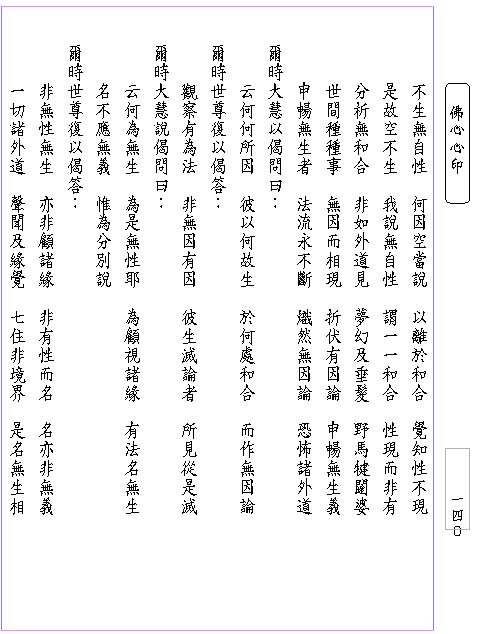 佛心心印
一四〇
不生無自性　何因空當說　以離於和合　覺知性不現
是故空不生　我說無自性　謂一一和合　性現而非有
分析無和合　非如外道見　夢幻及垂髮　野馬揵闥婆
世間種種事　無因而相現　折伏有因論　申暢無生義
申暢無生者　法流永不斷　熾然無因論　恐怖諸外道
爾時大慧以偈問曰：
云何何所因　彼以何故生　於何處和合　而作無因論
爾時世尊復以偈答：
觀察有為法　非無因有因　彼生滅論者　所見從是滅
爾時大慧說偈問曰：
云何為無生　為是無性耶　為顧視諸緣　有法名無生
名不應無義　惟為分別說
爾時世尊復以偈答：
非無性無生　亦非顧諸緣　非有性而名　名亦非無義
一切諸外道　聲聞及緣覺　七住非境界　是名無生相